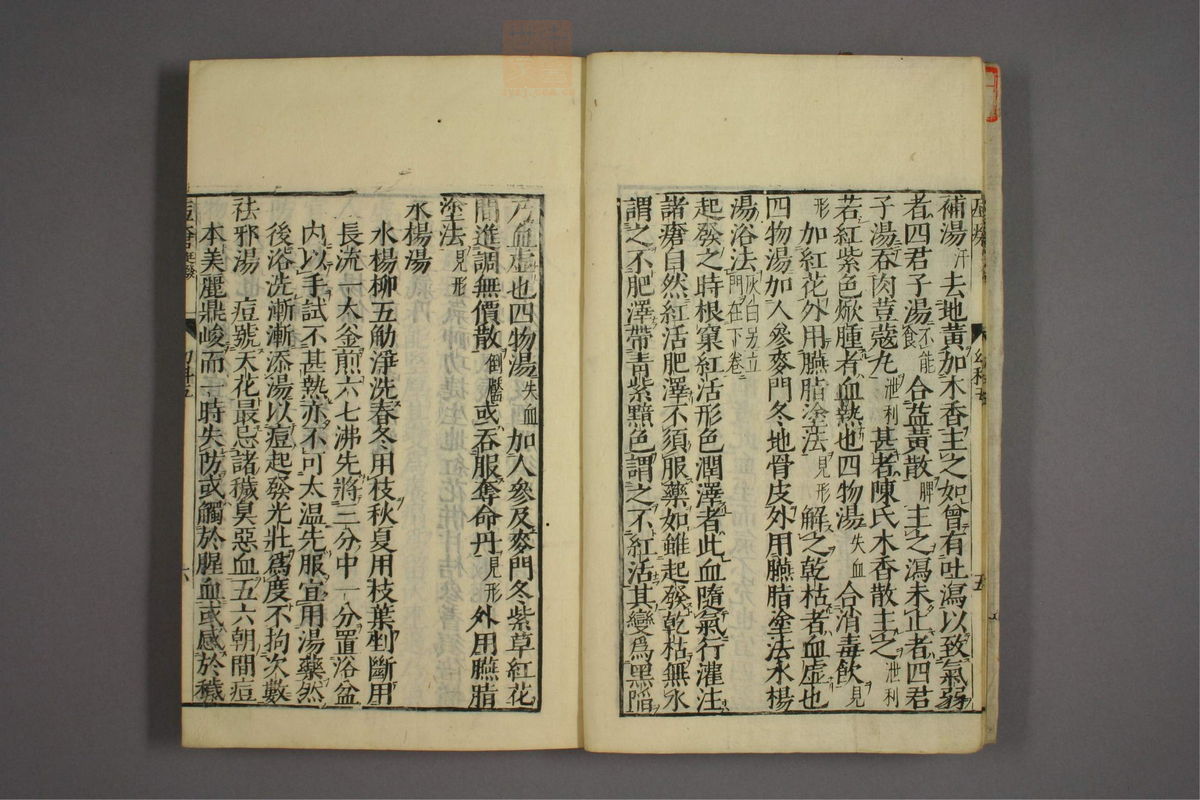 補湯汗去地黃加木香主之如曾有吐瀉以致氣弱
者四君子湯不能食合益黃散脾主之瀉未止者四君
子湯吞肉荳蔻丸泄利甚者陳氏木香散主之泄利
若紅紫色焮腫者血熱也四物湯失血合消毒飮見
形加紅花外用臙脂塗法見形解之乾枯者血虛也
四物湯加人參麥門冬地骨皮外用臙脂塗法水楊
湯浴法灰白另立門在下卷
起發之時根窠紅活形色潤澤者此血隨氣行灌注
諸瘡自然紅活肥澤不須服藥如雖起發乾枯無水
謂之不肥澤帶靑紫黯色謂之不紅活其變爲黑陷
五
乃血虛也四物湯失血加人參及麥門冬紫草紅花
間進調無價散倒黶或吞服奪命丹見形外用臙脂
塗法見形
水楊湯
水楊柳五觔淨洗春冬用枝秋夏用枝葉剉斷用
長流一大釜煎六七沸先將三分中一分置浴盆
内以手試不甚熱亦不可太温先服宜用湯藥然
後浴洗漸漸添湯以痘起發光壯爲度不拘次數
祛邪湯 痘號天花最忌諸穢臭惡血五六朝間痘
本美麗鼎峻而一時失防或觸於腥血或感於穢
六